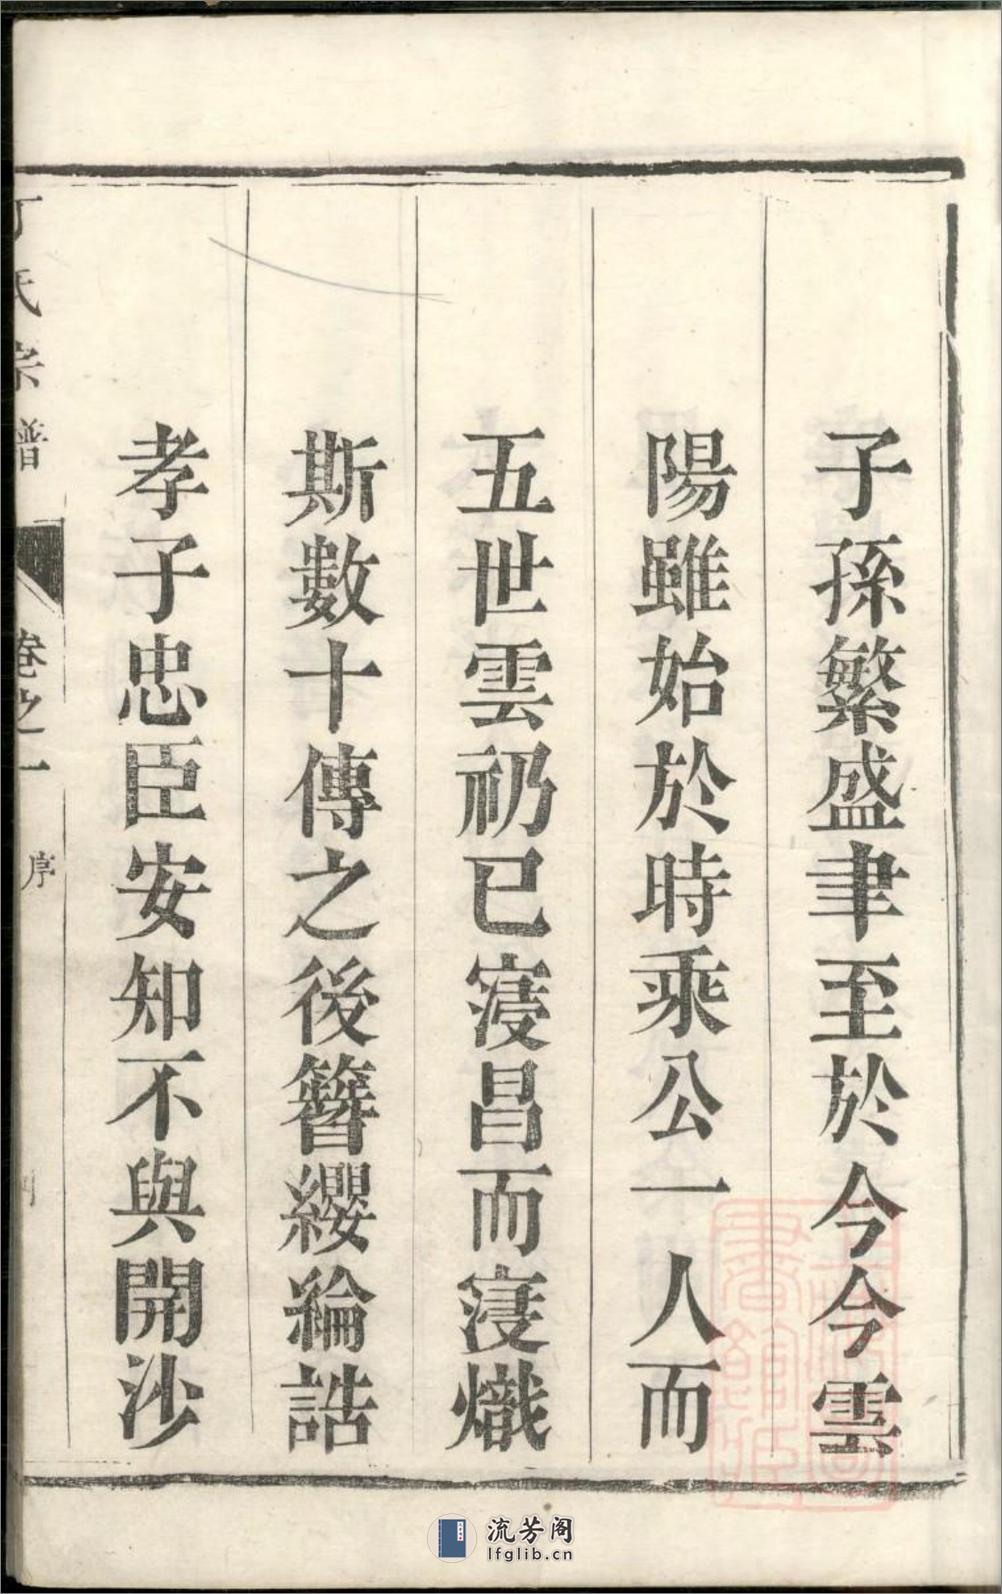 子孫繁盛聿至於今今雲
陽雖始於時乘公一人而
五世雲礽已寖昌而寖熾
斯數十傳之後簪纓綸誥
孝子忠臣安知不與開沙
丁氏宗譜
卷之一
序
流芳阁
lfglib.cn